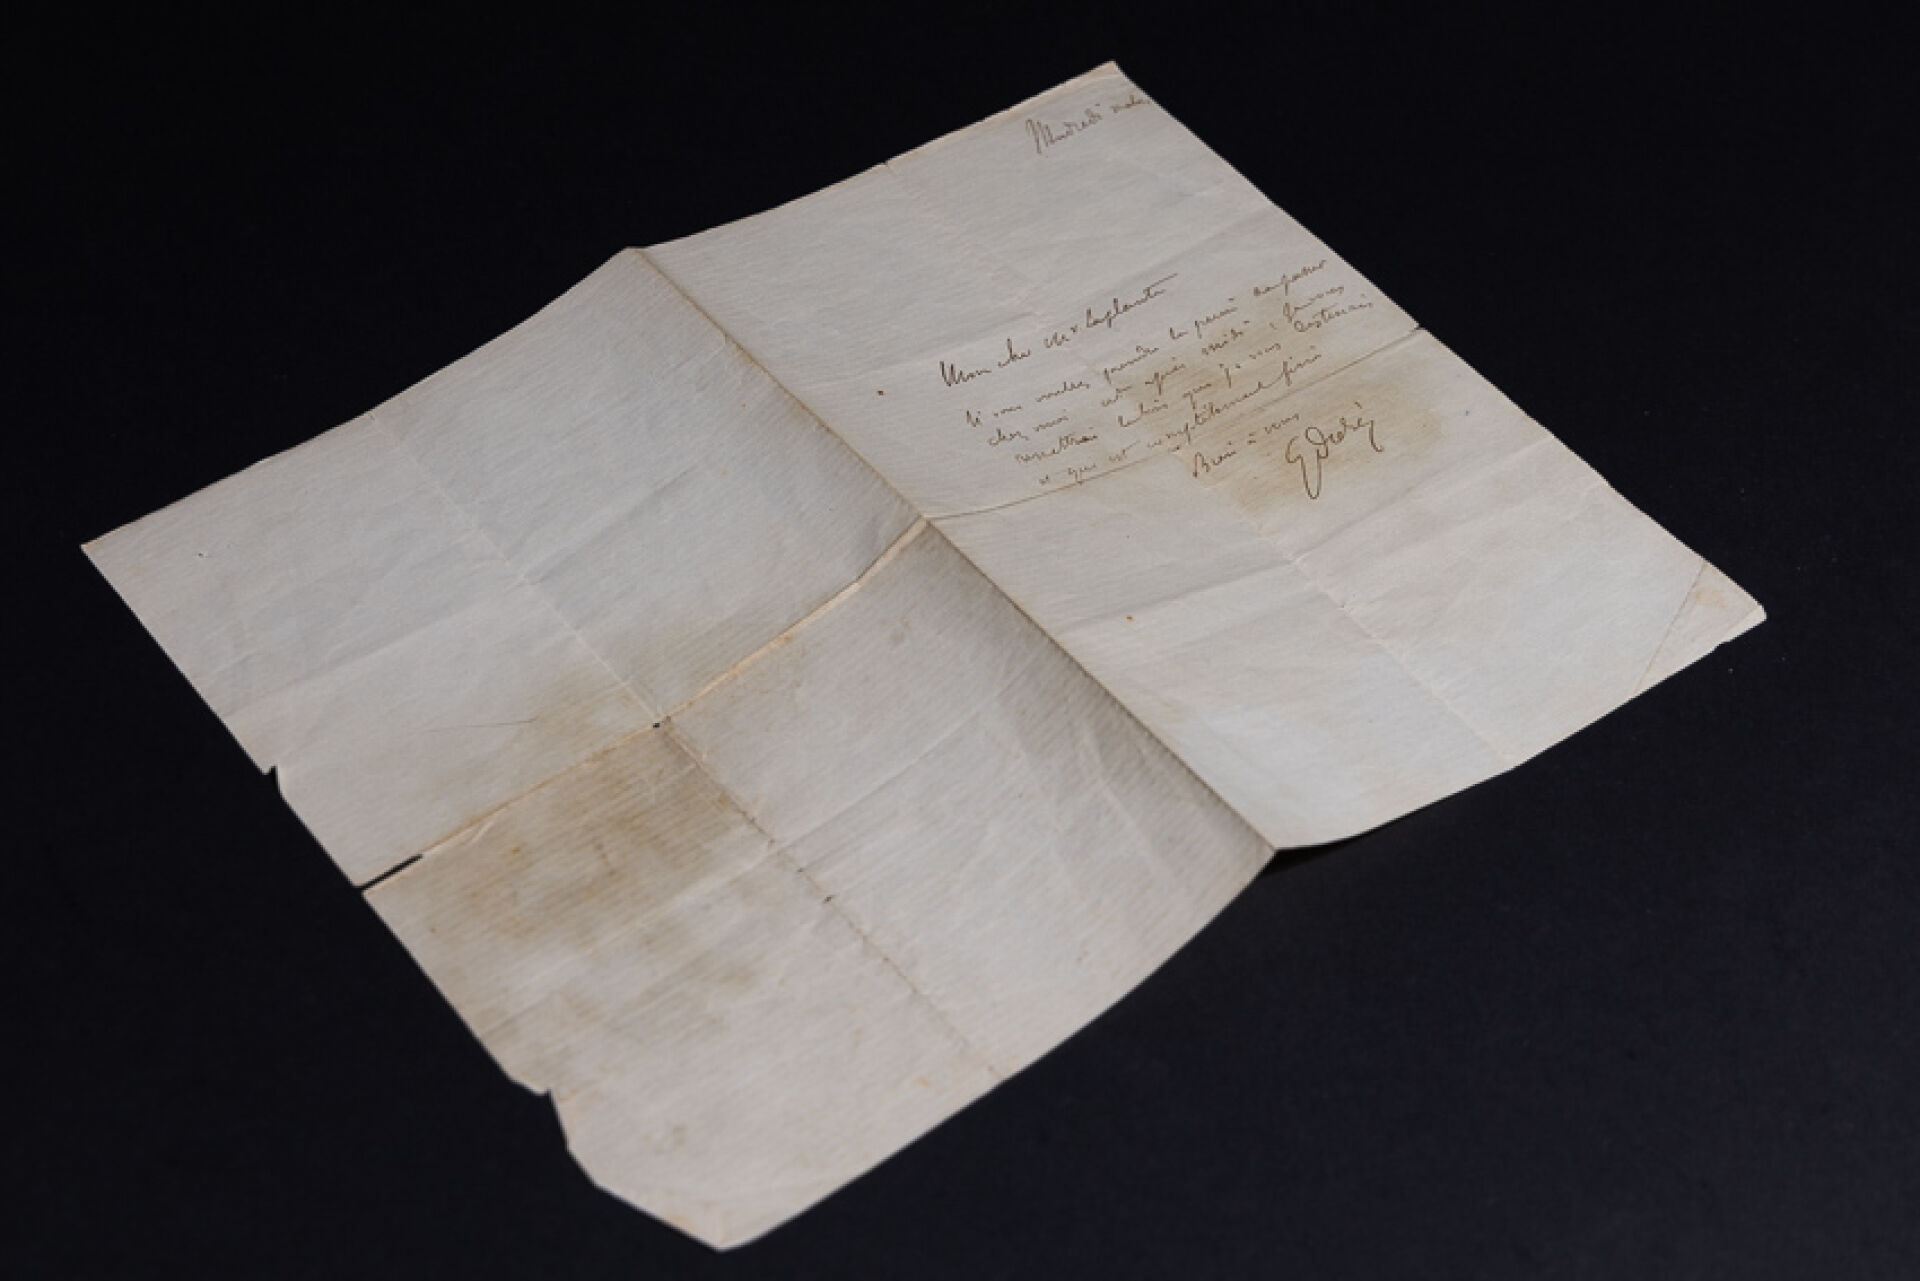 Vendredi matin
Mon cher Mr Laplante
Si vous voulez prendre la peine de passer
chez moi cette après midi, je vous
remettrai le bois que je vous destinais
et qui est complètement fini
Bien à vous
G Doré